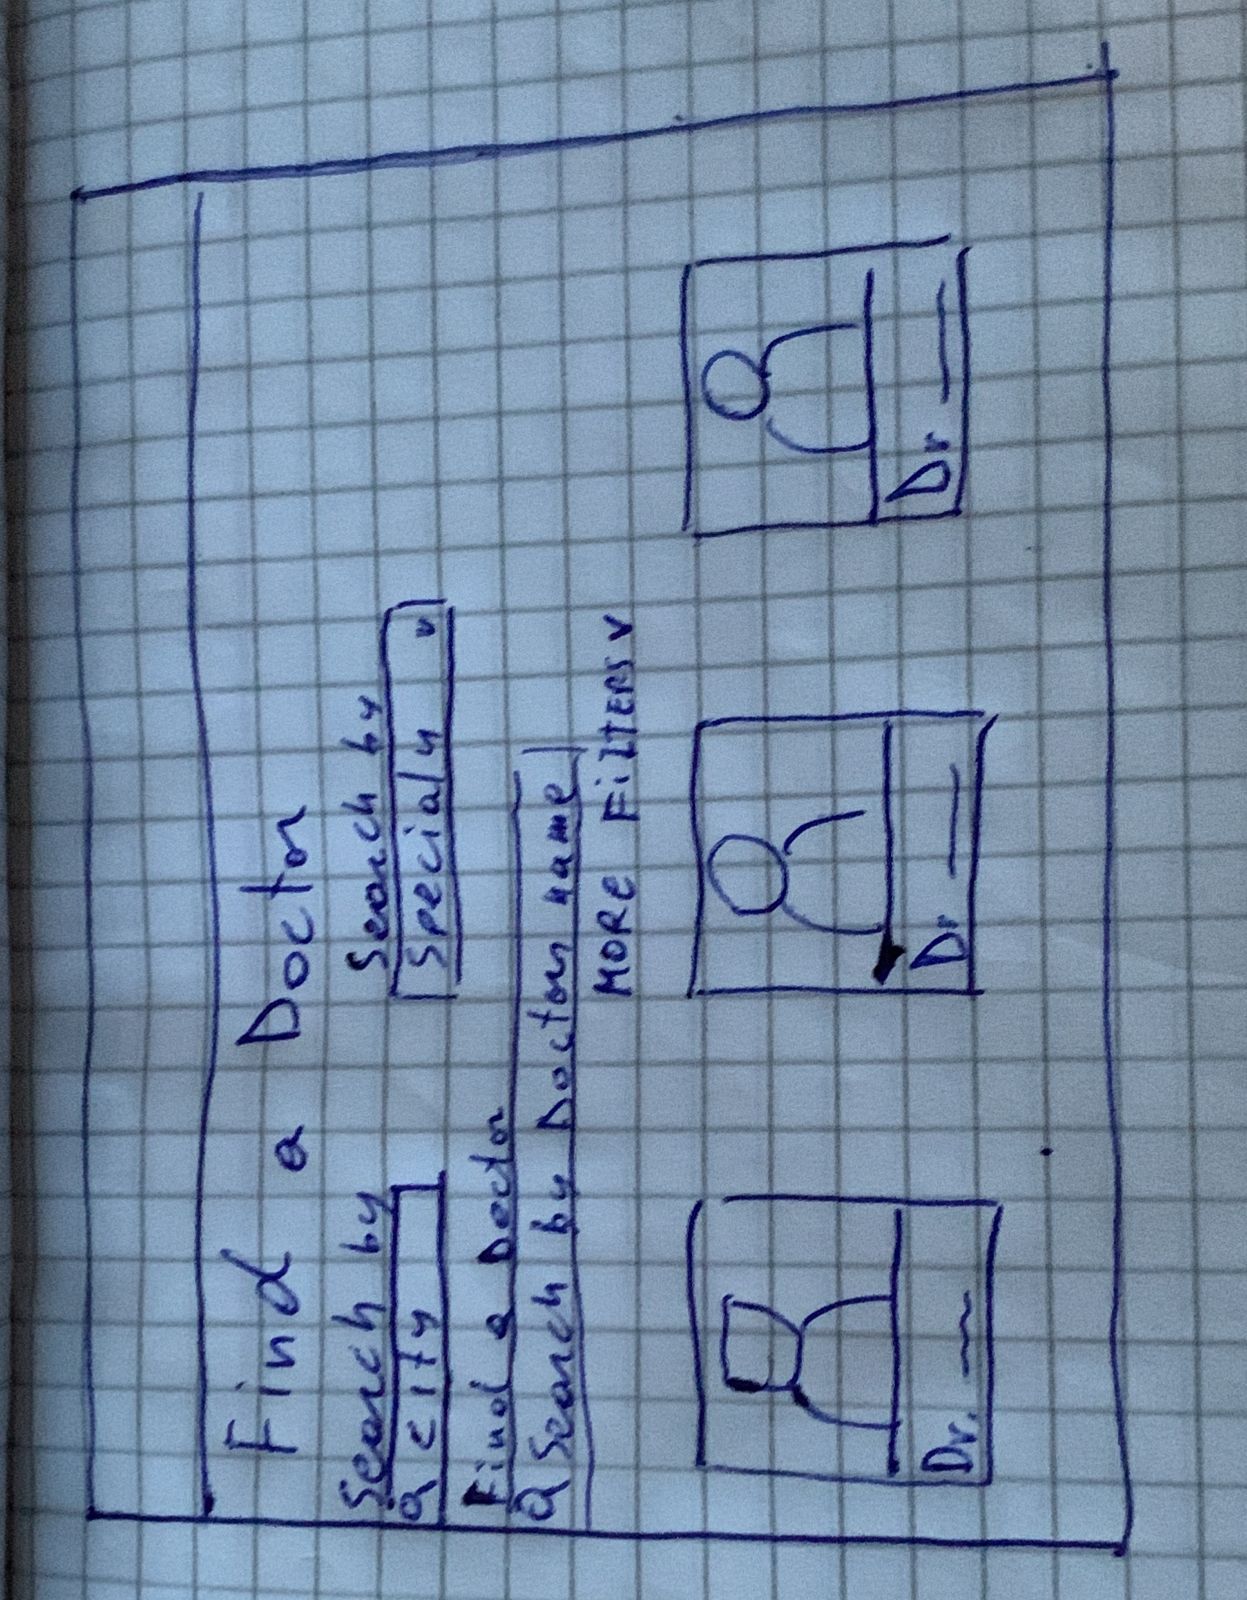 Find a Doctor
Search by Search by
Q City Specialy v
Find a Doctor
Q Search by Doctors name
MORE FiLTERS v
Dr. Dr Dr